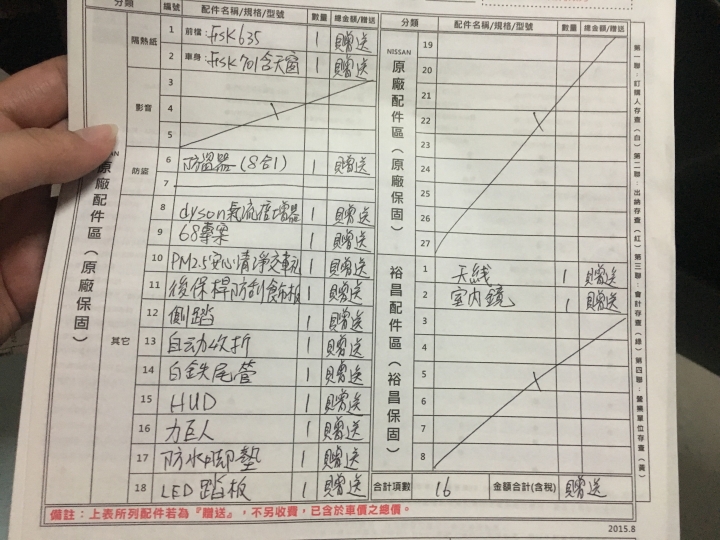 分類 編號 配件名稱/規格/型號 數量 總金額/贈送
隔熱紙 1 前檔:FSK635 1 贈送
2 車身:FSK701含天窗 1 贈送
影音 3
4
5
防盜 6 防盜器(8合1) 1 贈送
7
其它 8 dyson氣流倍增器 1 贈送
9 68專案 1 贈送
10 PM2.5安心清淨交車禮 1 贈送
11 後保桿防刮飾板 1 贈送
12 側踏 1 贈送
13 自动收折 1 贈送
14 白鉄尾管 1 贈送
15 HUD 1 贈送
16 力巨人 1 贈送
17 防水腳墊 1 贈送
18 LED踏板 1 贈送
NISSAN
原廠配件區(原廠保固)
分類 配件名稱/規格/型號 數量 總金額/贈送
NISSAN
原廠配件區(原廠保固)
19
20
21
22
23
24
25
26
27
裕昌配件區(裕昌保固)
1 天線 1 贈送
2 室內鏡 1 贈送
3
4
5
6
7
8
合計項數 16 金額合計(含稅) 贈送
第一聯:訂購人存查(白) 第二聯:出納存查(紅) 第三聯:會計存查(綠) 第四聯:營業單位存查(黃)
備註:上表所列配件若為『贈送』,不另收費,已含於車價之總價。
2015.8